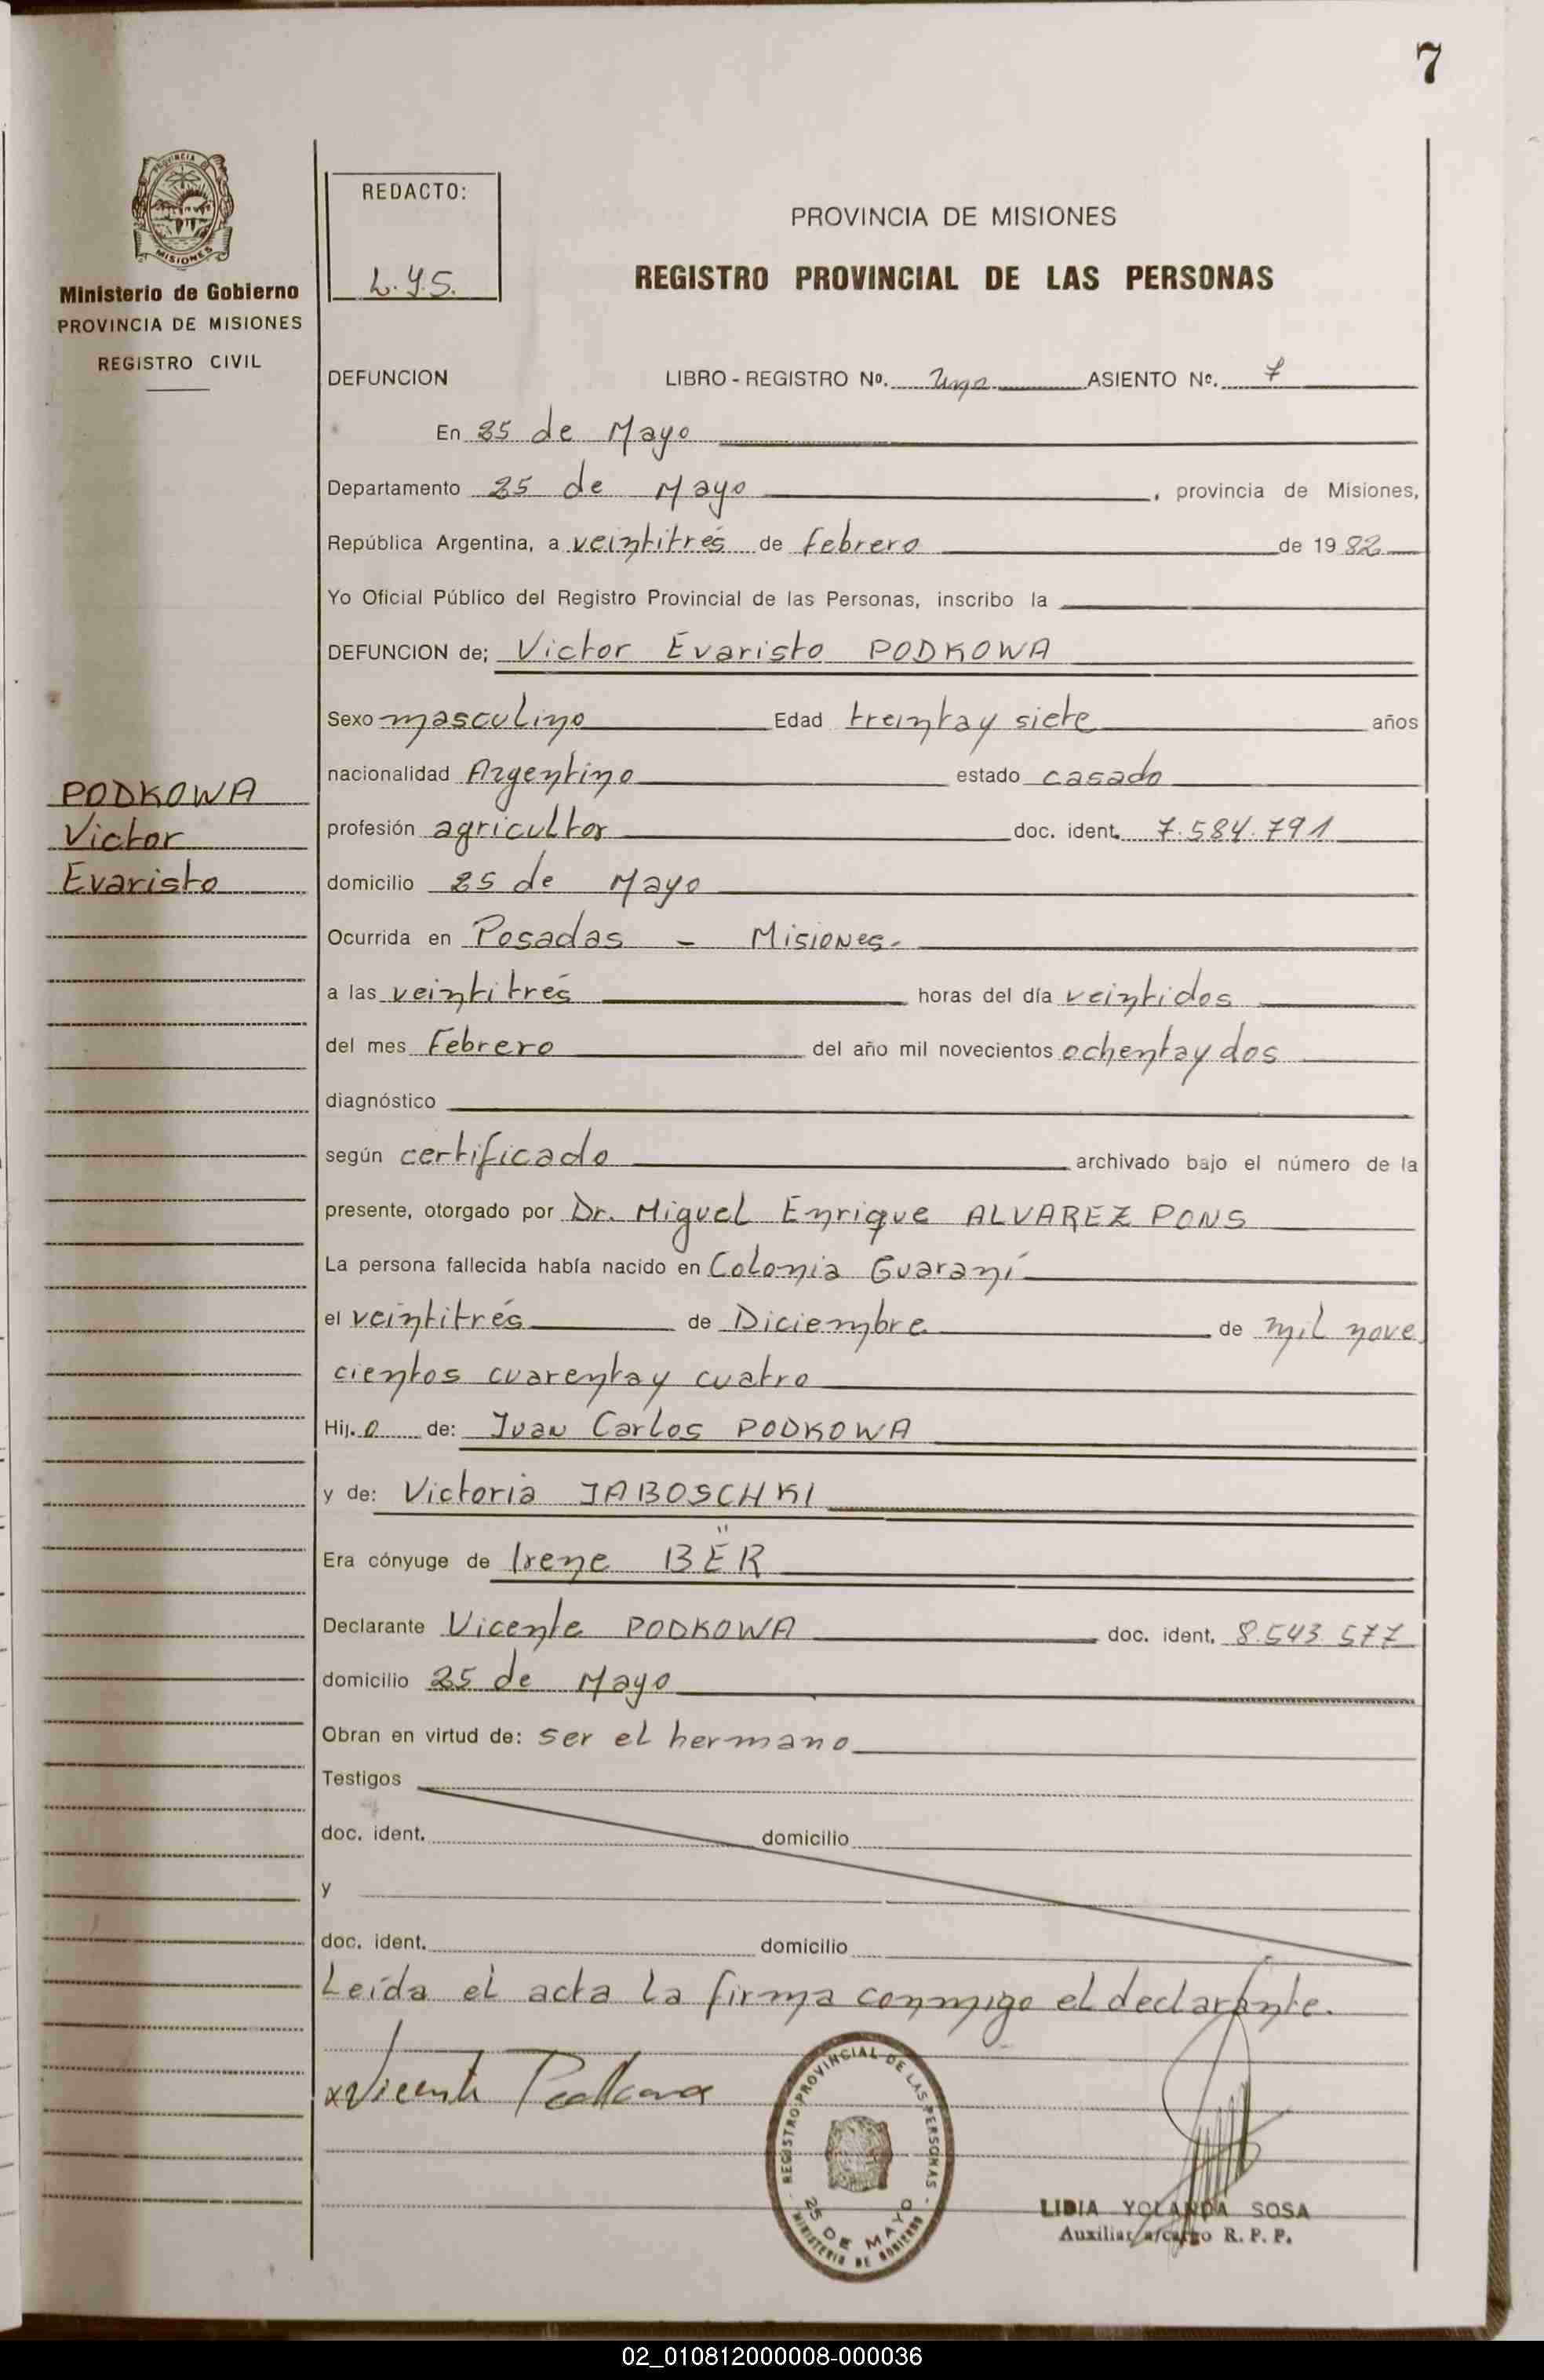 7
PROVINCIA DE
MISIONES
Ministerio de Gobierno
PROVINCIA DE MISIONES
REGISTRO CIVIL
REDACTO:
L.Y.S.
PROVINCIA DE MISIONES
REGISTRO PROVINCIAL DE LAS PERSONAS
DEFUNCION LIBRO - REGISTRO No. Uno ASIENTO Nº. 7
En 25 de Mayo
Departamento 25 de Mayo, provincia de Misiones,
República Argentina, a veintitrés de febrero de 1982
Yo Oficial Público del Registro Provincial de las Personas, inscribo la
DEFUNCION de; Victor Evaristo PODKOWA
Sexo masculino Edad treinta y siete años
nacionalidad Argentino estado casado
PODKOWA
Victor
Evaristo
profesión agricultor doc. ident. 7.584.791
domicilio 25 de Mayo
Ocurrida en Posadas - Misiones.
a las veintitrés horas del día veintidos
del mes Febrero del año mil novecientos ochenta y dos
diagnóstico
según certificado archivado bajo el número de la
presente, otorgado por Dr. Miguel Enrique ALVAREZ PONS
La persona fallecida había nacido en Colonia Guaraní
el veintitrés de Diciembre de mil nove
cientos cuarenta y cuatro
Hij.o de: Juan Carlos PODKOWA
y de: Victoria JABOSCHKI
Era cónyuge de Irene BËR
Declarante Vicente PODKOWA doc. ident. 8.543.577
domicilio 25 de Mayo
Obran en virtud de: ser el hermano
Testigos
doc. ident. domicilio
y
doc. ident. domicilio
Leída el acta la firma conmigo el declarante.
x Vicente Podkowa
REGISTRO PROVINCIAL DE LAS PERSONAS
25 DE MAYO
MINISTERIO DE GOBIERNO
LIDIA YOLANDA SOSA
Auxiliar a/cargo R. P. P.
02_010812000008-000036